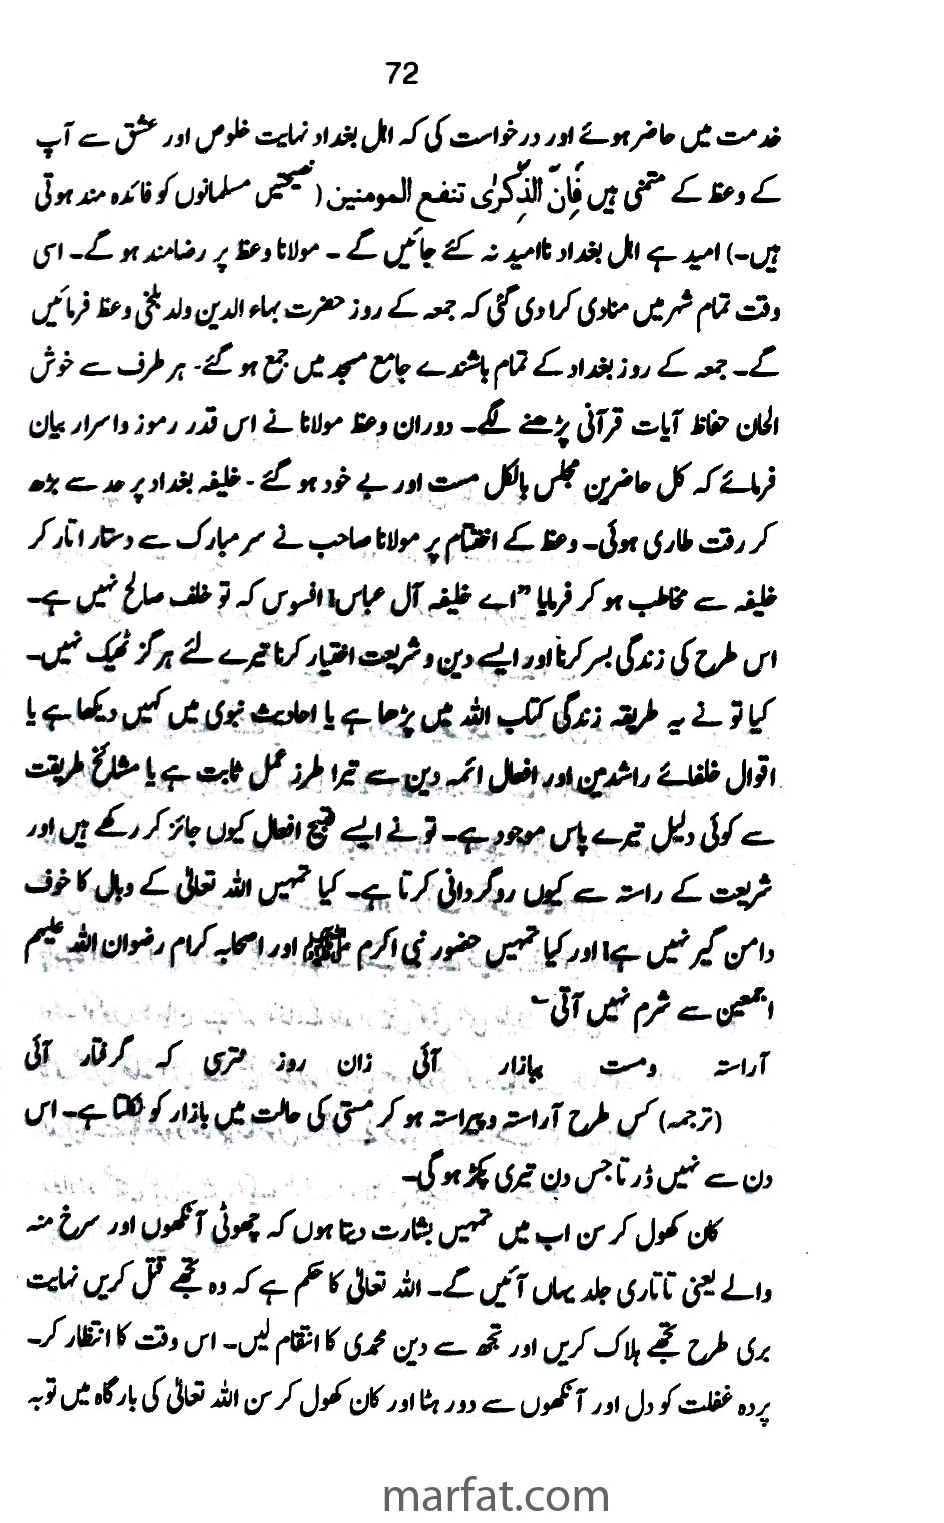 72
خدمت میں حاضر ہوئے اور درخواست کی کہ اہل بغداد نہایت خلوص اور عشق سے آپ
کے وعظ کے متمنی ہیں فَاِنَّ الذِّکرٰی تنفع المومنین (نصیحتیں مسلمانوں کو فائدہ مند ہوتی
ہیں۔) امید ہے اہل بغداد ناامید نہ کئے جائیں گے ۔ مولانا وعظ پر رضامند ہو گے۔ اسی
وقت تمام شہر میں منادی کرا دی گئی کہ جمعہ کے روز حضرت بہاء الدین ولد بلخی وعظ فرمائیں
گے۔ جمعہ کے روز بغداد کے تمام باشندے جامع مسجد میں جمع ہو گئے۔ ہر طرف سے خوش
الحان حفاظ آیات قرآنی پڑھنے لگے۔ دوران وعظ مولانا نے اس قدر رموز و اسرار بیان
فرمائے کہ کل حاضرین مجلس بالکل مست اور بے خود ہو گئے ۔ خلیفہ بغداد پر حد سے بڑھ
کر رقت طاری ہوئی۔ وعظ کے اختتام پر مولانا صاحب نے سر مبارک سے دستار اتار کر
خلیفہ سے مخاطب ہو کر فرمایا ”اے خلیفہ آل عباس! افسوس کہ تو خلف صالح نہیں ہے۔
اس طرح کی زندگی بسر کرنا اور ایسے دین و شریعت اختیار کرنا تیرے لئے ہرگز ٹھیک نہیں۔
کیا تو نے یہ طریقہ زندگی کتاب اللہ میں پڑھا ہے یا احادیث نبوی میں کہیں دیکھا ہے یا
اقوال خلفائے راشدین اور افعال ائمہ دین سے تیرا طرز عمل ثابت ہے یا مشائخ طریقت
سے کوئی دلیل تیرے پاس موجود ہے۔ تو نے ایسے قبیح افعال کیوں جائز کر رکھے ہیں اور
شریعت کے راستہ سے کیوں روگردانی کرتا ہے۔ کیا تمہیں اللہ تعالیٰ کے وبال کا خوف
دامن گیر نہیں ہے! اور کیا تمہیں حضور نبی اکرم ﷺ اور اصحابہ کرام رضوان اللہ علیہم
اجمعین سے شرم نہیں آتی۔
آراستہ ومست ببازار آئی زان روز مترسی کہ گرفتار آئی
(ترجمہ) کس طرح آراستہ و پیراستہ ہو کر مستی کی حالت میں بازار کو ہے۔ اس
دن سے نہیں ڈرتا جس دن تیری پکڑ ہو گی۔
کان کھول کر سن اب میں تمہیں بشارت دیتا ہوں کہ چھوٹی آنکھوں اور سرخ منہ
والے یعنی تاتاری جلد یہاں آئیں گے۔ اللہ تعالیٰ کا حکم ہے کہ وہ تجھے قتل کریں نہایت
بری طرح تجھے ہلاک کریں اور تجھ سے دین محمدی کا انتقام لیں۔ اس وقت کا انتظار کر۔
پردہ غفلت کو دل اور آنکھوں سے دور ہٹا اور کان کھول کر سن اللہ تعالیٰ کی بارگاہ میں توبہ
marfat.com